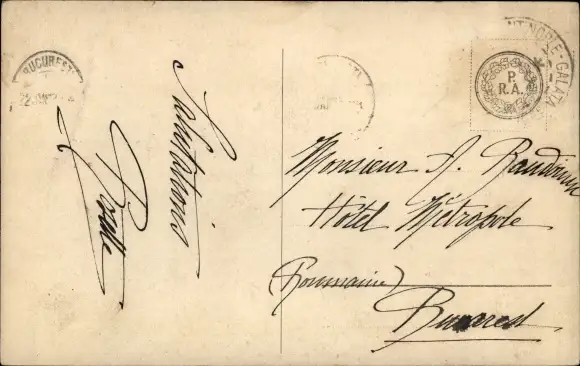 BUCURESTI
22
P.
R.A.
GALATA
Salutations
Monsieur A. Baudouin
Hôtel Métropole
(Roumaine)
Bucarest